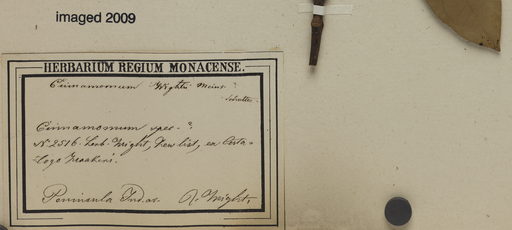 imaged 2009
HERBARIUM REGIUM MONACENSE.
Cinnamomum Wightii Meisn ?
Cinnamomum spec. ?
N. 2516. Herb. Wight, New list, ex Cata-
logo
Peninsula Ind. or. R. Wight,